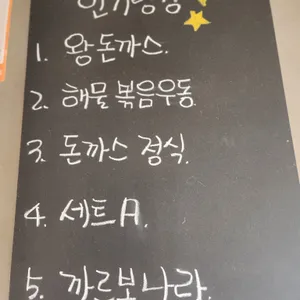 인기랭킹
1. 왕돈까스.
2. 해물볶음우동
3. 돈까스 정식.
4. 세트A.
5. 까르보나라.